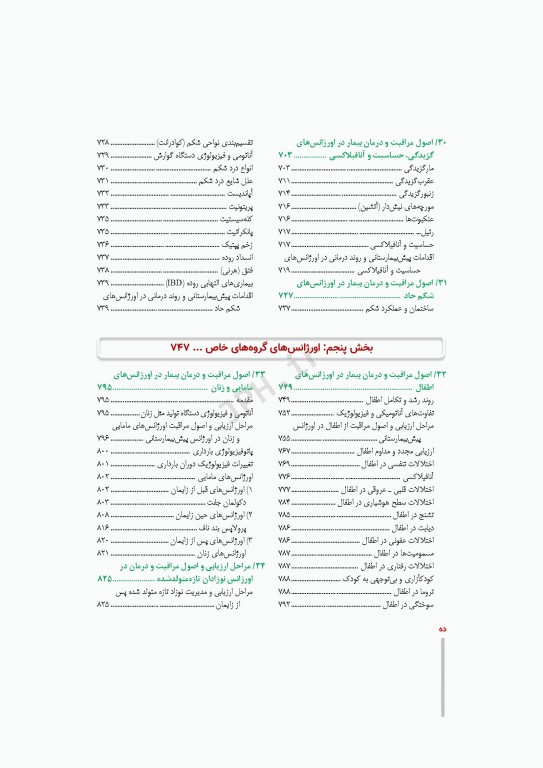 ۳۰/ اصول مراقبت و درمان بیمار در اورژانس‌های
گزیدگی، حساسیت و آنافیلاکسی ۷۰۳
مارگزیدگی ۷۰۳
عقرب‌گزیدگی ۷۱۱
زنبورگزیدگی ۷۱۴
مورچه‌های نیش‌دار (آتشین) ۷۱۶
عنکبوت‌ها ۷۱۶
رتیل ۷۱۷
حساسیت و آنافیلاکسی ۷۱۷
اقدامات پیش‌بیمارستانی و روند درمانی در اورژانس‌های
حساسیت و آنافیلاکسی ۷۱۹
۳۱/ اصول مراقبت و درمان بیمار در اورژانس‌های
شکم حاد ۷۲۷
ساختمان و عملکرد شکم ۷۲۷
تقسیم‌بندی نواحی شکم (کوادرانت) ۷۲۸
آناتومی و فیزیولوژی دستگاه گوارش ۷۲۹
انواع درد شکم ۷۳۰
علل شایع درد شکم ۷۳۱
آپاندیست ۷۳۲
پریتونیت ۷۳۳
کله‌سیستیت ۷۳۵
پانکراتیت ۷۳۵
زخم پپتیک ۷۳۶
انسداد روده ۷۳۷
فتق (هرنی) ۷۳۸
بیماری‌های التهابی روده (IBD) ۷۳۹
اقدامات پیش‌بیمارستانی و روند درمانی در اورژانس‌های
شکم حاد ۷۳۹
بخش پنجم: اورژانس‌های گروه‌های خاص ... ۷۴۷
۳۲/ اصول مراقبت و درمان بیمار در اورژانس‌های
اطفال ۷۴۹
روند رشد و تکامل اطفال ۷۴۹
تفاوت‌های آناتومیکی و فیزیولوژیک ۷۵۲
مراحل ارزیابی و اصول مراقبت از اطفال در اورژانس
پیش‌بیمارستانی ۷۵۵
ارزیابی مجدد و مداوم اطفال ۷۶۷
اختلالات تنفسی در اطفال ۷۶۹
آنافیلاکسی ۷۷۶
اختلالات قلبی ـ عروقی در اطفال ۷۷۷
اختلالات سطح هوشیاری در اطفال ۷۸۴
تشنج در اطفال ۷۸۵
دیابت در اطفال ۷۸۶
اختلالات عفونی در اطفال ۷۸۶
مسمومیت‌ها در اطفال ۷۸۷
اختلالات رفتاری در اطفال ۷۸۷
کودک‌آزاری و بی‌توجهی به کودک ۷۸۸
تروما در اطفال ۷۸۸
سوختگی در اطفال ۷۹۲
۳۳/ اصول مراقبت و درمان بیمار در اورژانس‌های
مامایی و زنان ۷۹۵
مقدمه ۷۹۵
آناتومی و فیزیولوژی دستگاه تولید مثل زنان ۷۹۵
مراحل ارزیابی و اصول مراقبت اورژانس‌های مامایی
و زنان در اورژانس پیش‌بیمارستانی ۷۹۶
پاتوفیزیولوژی بارداری ۸۰۰
تغییرات فیزیولوژیک دوران بارداری ۸۰۱
اورژانس‌های مامایی ۸۰۲
۱) اورژانس‌های قبل از زایمان ۸۰۲
دکولمان جفت ۸۰۳
۲) اورژانس‌های حین زایمان ۸۰۸
پرولاپس بند ناف ۸۱۶
۳) اورژانس‌های پس از زایمان ۸۲۰
اورژانس‌های زنان ۸۲۱
۳۴/ مراحل ارزیابی و اصول مراقبت و درمان در
اورژانس نوزادان تازه‌متولدشده ۸۲۵
مراحل ارزیابی و مدیریت نوزاد تازه متولد شده پس
از زایمان ۸۲۵
ده